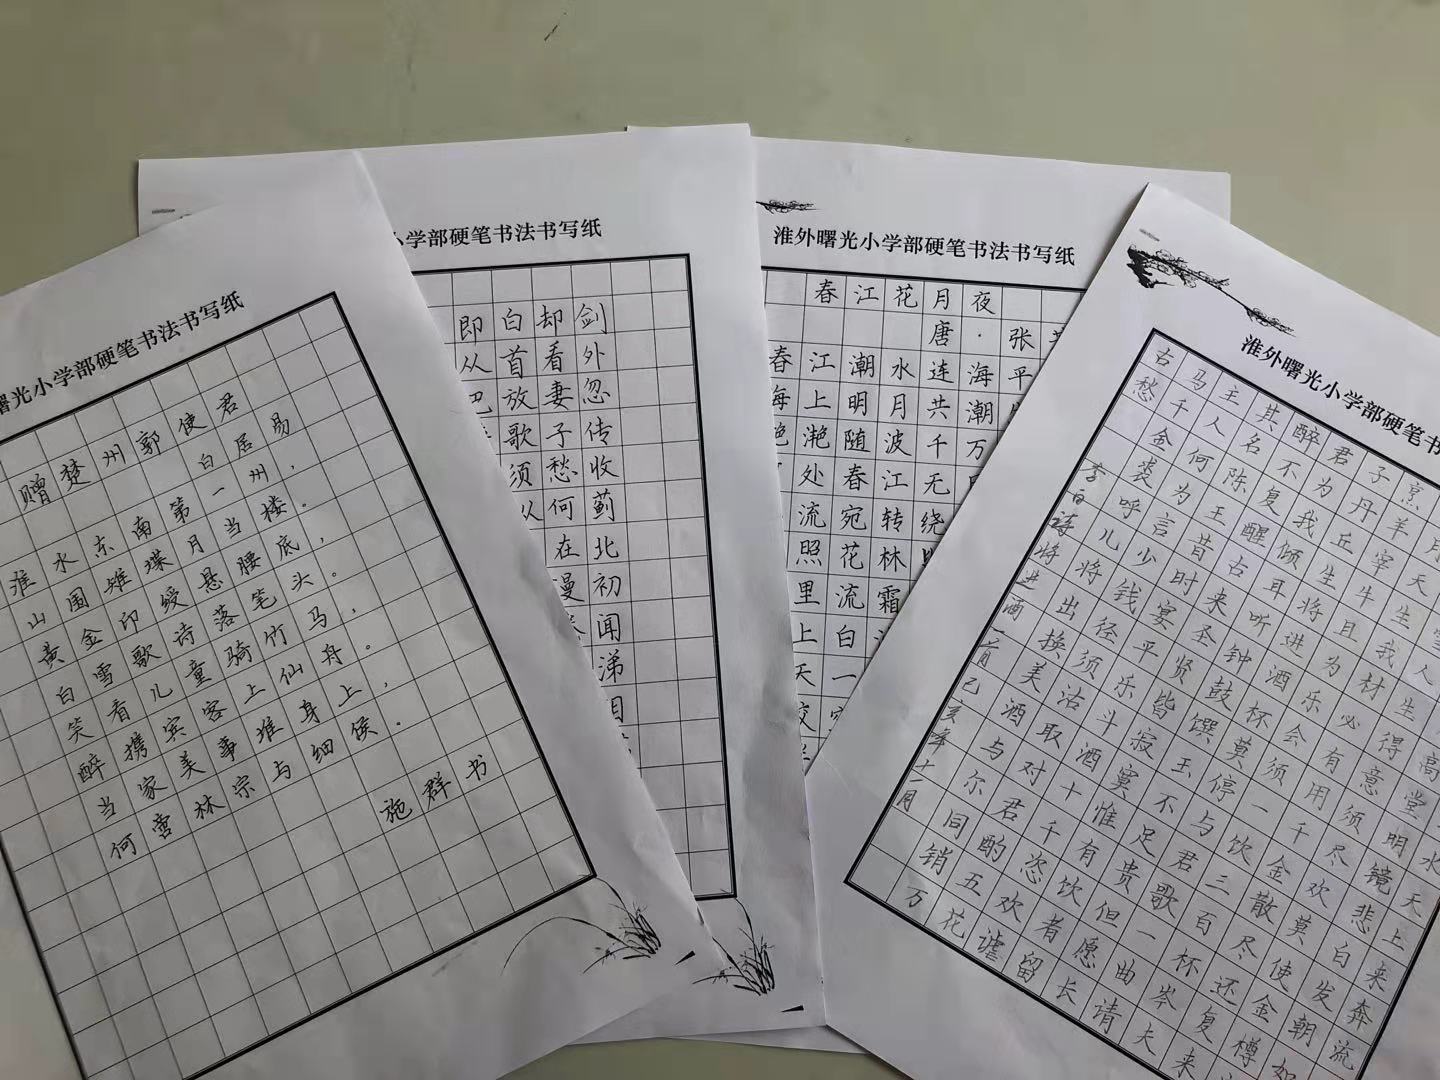 曙光小学部硬笔书法书写纸
赠楚州郭使君
白居易
淮水东南第一州，
山围雉堞月当楼。
黄金印绶悬腰底，
白雪歌诗落笔头。
笑看儿童骑竹马，
醉携宾客上仙舟。
当家美事堆身上，
何啻林宗与细侯。
施群书
小学部硬笔书法书写纸
剑外忽传收蓟北初闻涕
却看妻子愁何在漫
白首放歌须
即从巴
淮外曙光小学部硬笔书法书写纸
春江花月夜
唐·张
春江潮水连海平
海上明月共潮
滟滟随波千万
处春江无
流宛转绕
照花林
里流霜
上白
天一
淮外曙光小学部硬笔书
水天上来奔流
高堂明镜悲白发朝如
雪人生得意须尽欢莫使金樽
月天生我材必有用千金散尽还复来
烹羊宰牛且为乐会须一饮三百杯岑夫
子丹丘生将进酒杯莫停与君歌一曲请
君为我倾耳听钟鼓馔玉不足贵但愿长
醉不复醒古来圣贤皆寂寞惟有饮者留
其名陈王昔时宴平乐斗酒十千恣欢谑
主人何为言少钱径须沽取对君酌五花
马千金裘呼儿将出换美酒与尔同销万
古愁
李白诗将进酒一首己亥年十一月